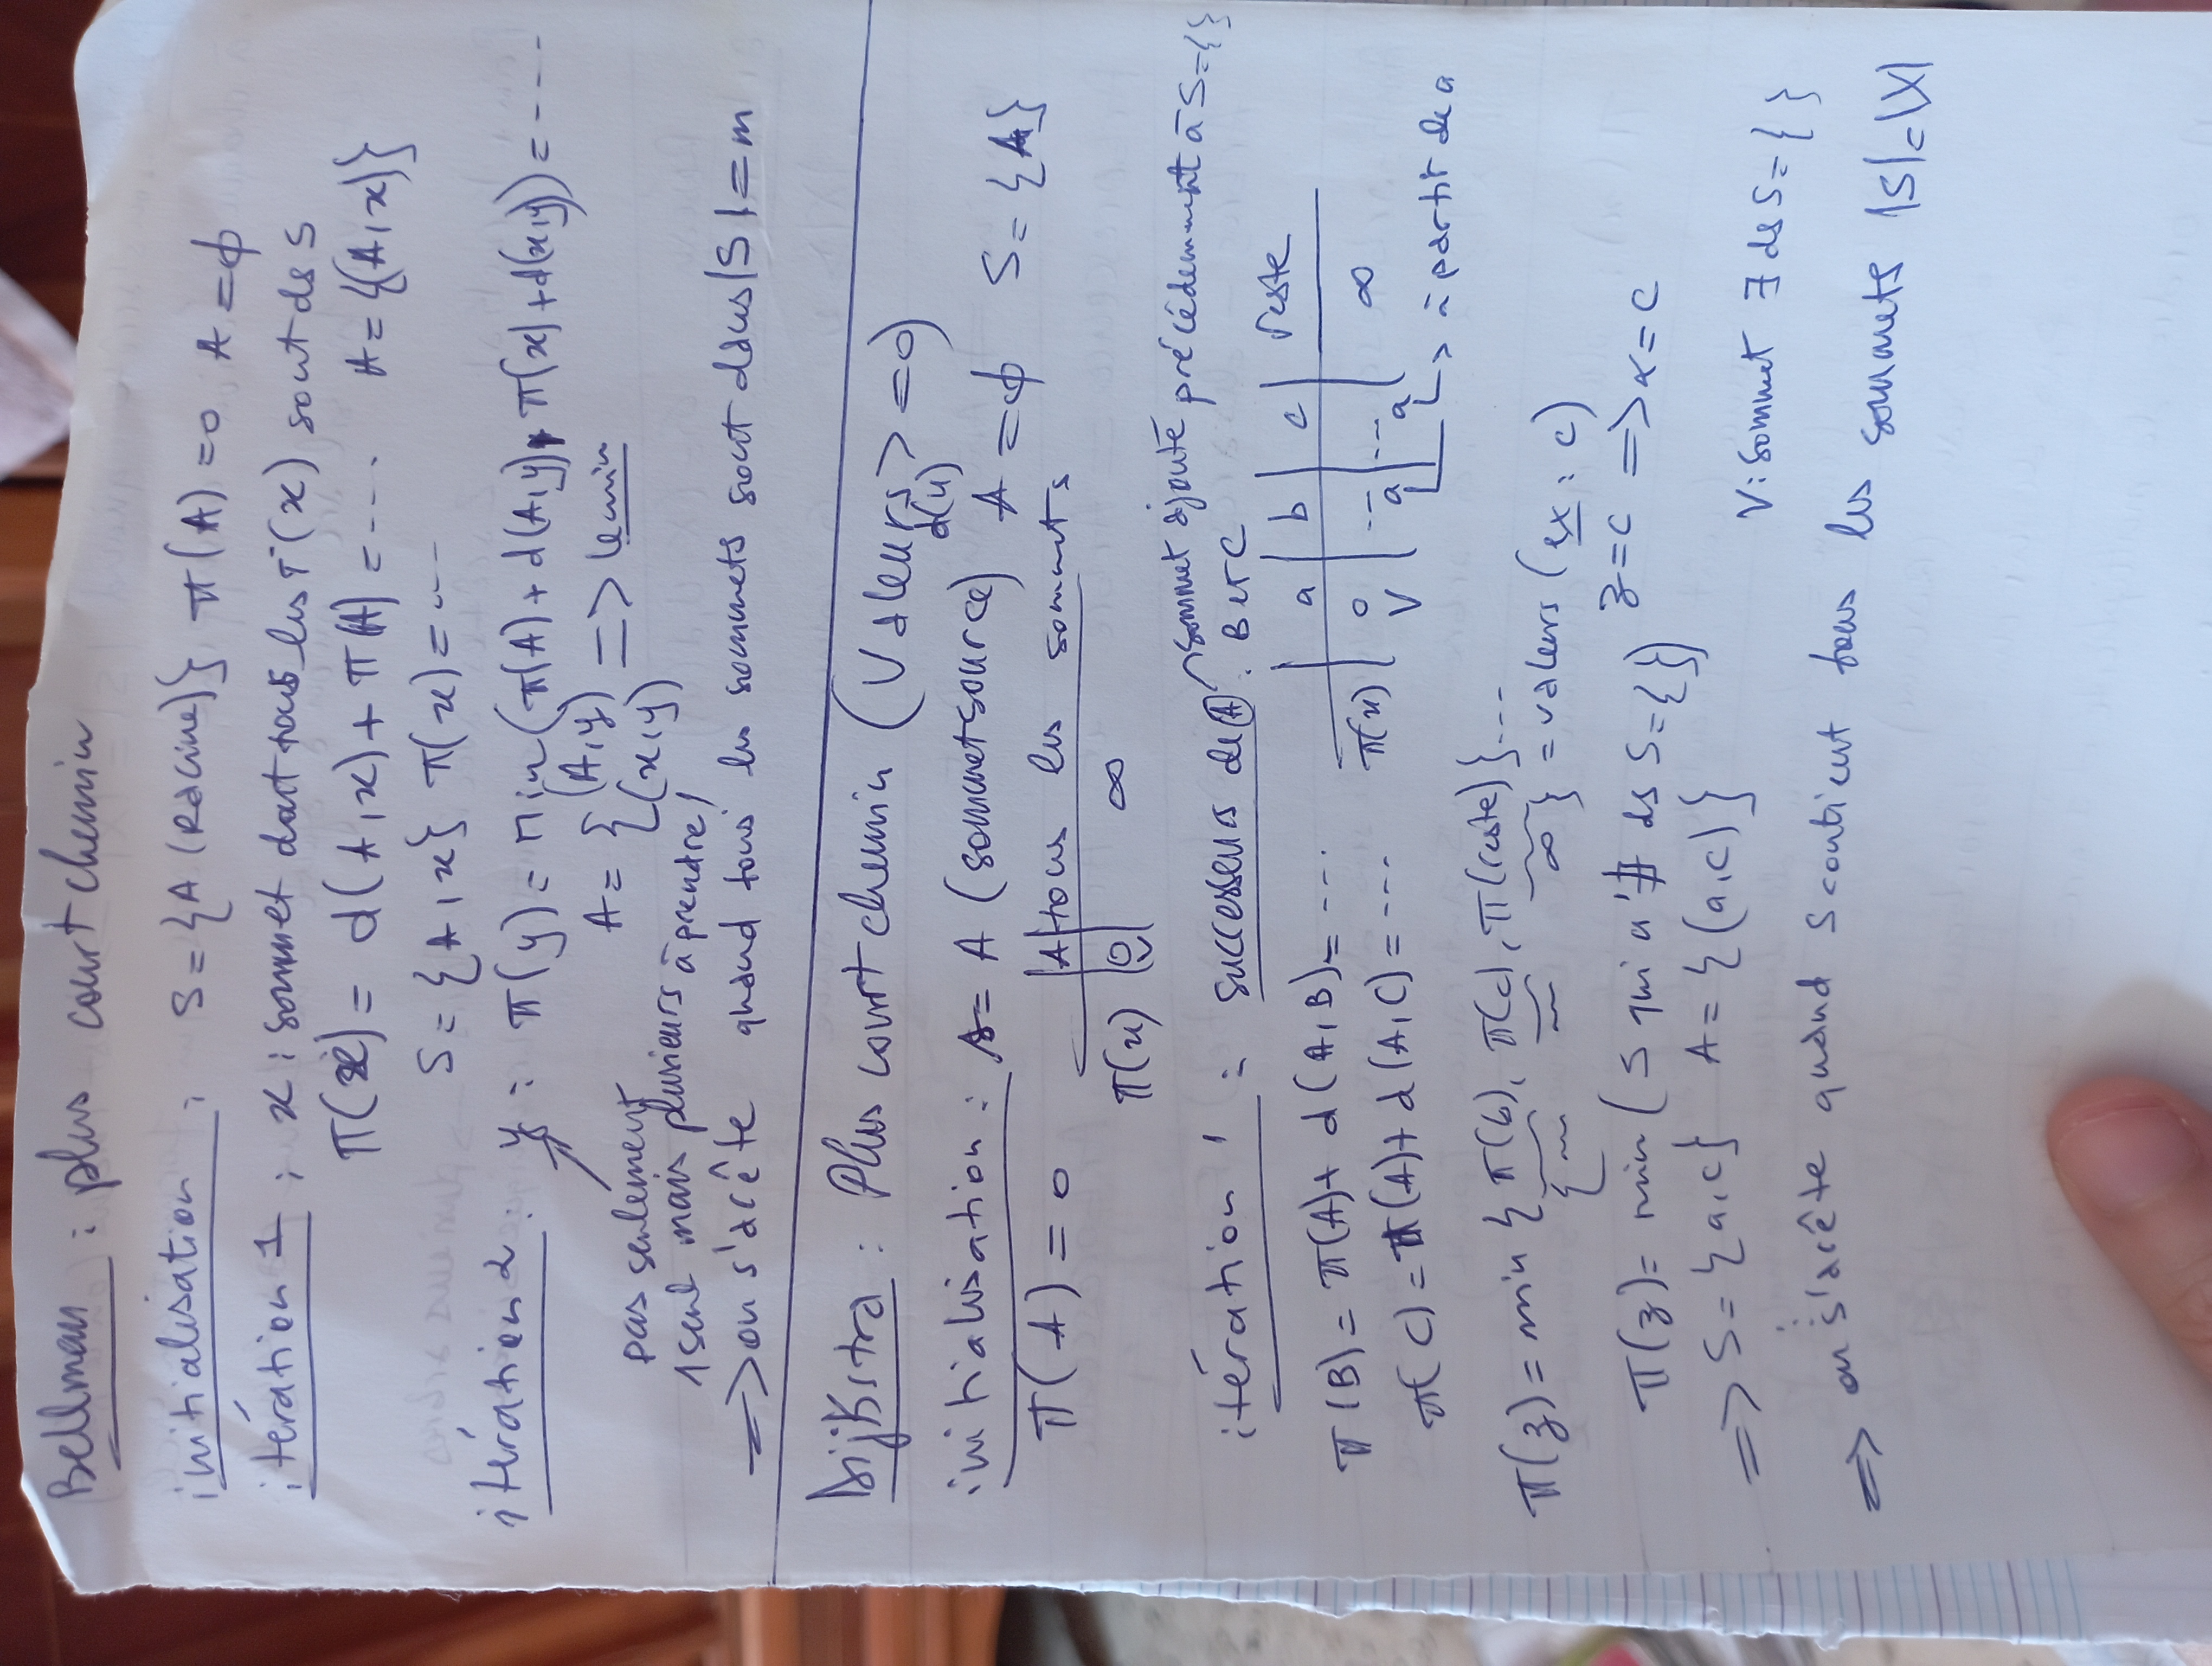 Bellman : plus court chemin
initialisation : S = {A (Racine)} π(A) = 0 A = ϕ
itération 1 : x : sommet dont tous les Γ⁻(x) sont ds S
π(x) = d(A,x) + π(A) = --- A = {(A,x)}
S = {A, x} π(x) = ---
itération 2 : y : π(y) = Min (π(A) + d(A,y), π(x) + d(x,y)) = ----
A = { (A,y) => le min
(x,y)
pas seulement
1 seul mais plusieurs à prendre !
=> on s'arête quand tous les sommets sont ddans |S| = m
Dijkstra : Plus court chemin (Valeurs >= 0)
d(u)
initialisation : s = A (sommet source) A = ϕ S = {A}
π(A) = 0 | A | tous les sommets
π(x) | 0 | ∞
V
sommet ajouté précédemment à S = { }
itération 1 : successeurs de A : B et C
a | b | c | reste
π(B) = π(A) + d(A,B) = ---
π(x) | 0 | --- | --- | ∞
V a a
π(C) = π(A) + d(A,C) = ---
à partir de a
π(z) = min {π(b), π(c), π(reste)} ---
{ ∞ } = valeurs (ex : c)
π(z) = min (S qui n'∄ ds S = { }) z = c => x = c
=> S = {a,c} A = {(a,c)}
V : sommet ∃ ds S = { }
=> on s'arête quand S contient tous les sommets |S| = |X|